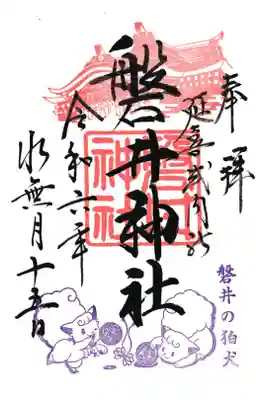 奉拝
延喜式内社
磐井神社
令和六年
水無月十五日
磐井の狛犬
磐井神社